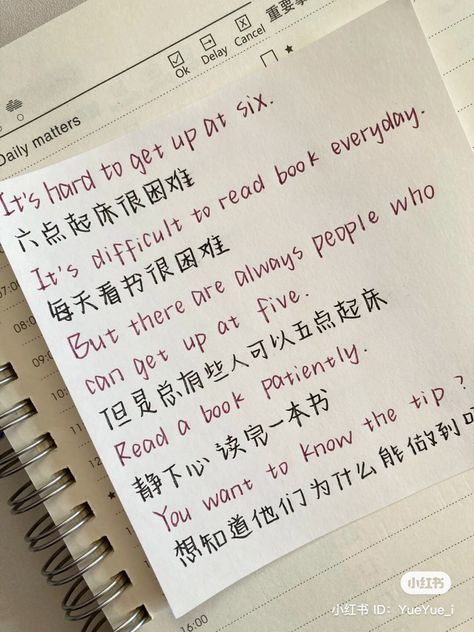 重要事
Ok
Delay
Cancel
Daily matters
It's hard to get up at six.
六点起床很困难
It's difficult to read book everyday.
每天看书很困难
But there are always people who
can get up at five.
但是总有些人可以五点起床
Read a book patiently.
静下心读完一本书
You want to know the tip?
想知道他们为什么能做到
07:00
08:00
09:00
10:00
11:00
12:00
16:00
小红书
小红书 ID: YueYue_i